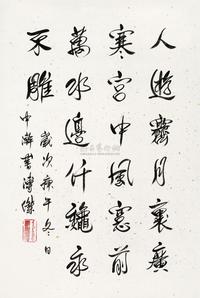 人遊霽月裏廣
寒宮中風窓前
萬水邊什穐永
不雕
歲次庚午冬日
中澣書溥傑